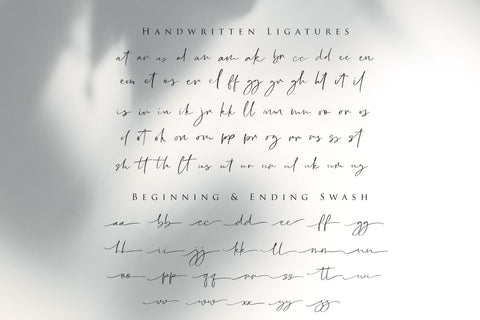 HANDWRITTEN LIGATURES
at ar as al an am ak br cc dd ee en
em et es er el ff gg gr gh ht it il
is ir in ik jr kk ll nn mn oo or os
ol ot ok on om pp pr og rr rs ss st
sh tt th lt us ut un ur ul uk um ug
BEGINNING & ENDING SWASH
aa bb cc dd ee ff gg
hh ii jj kk ll mm nn
oo pp qq rr ss tt uu
vv ww xx yy zz